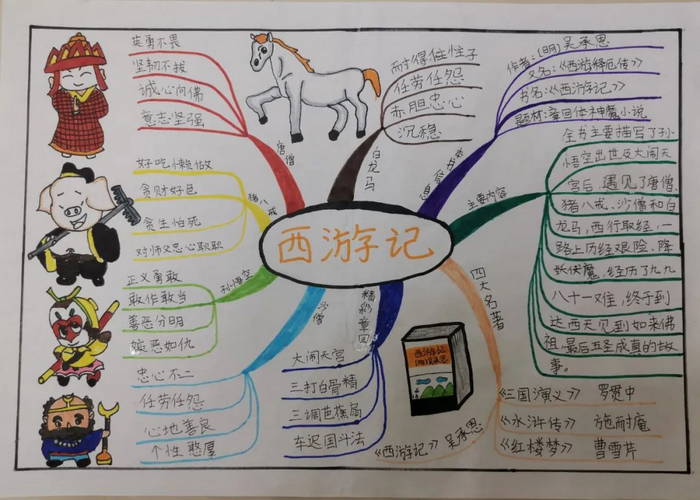 西游记
唐僧
英勇不畏
坚韧不拔
诚心向佛
意志坚强
猪八戒
好吃懒做
贪财好色
贪生怕死
对师父忠心耿耿
孙悟空
正义勇敢
敢作敢当
善恶分明
嫉恶如仇
沙僧
忠心不二
任劳任怨
心地善良
个性憨厚
白龙马
耐得住性子
任劳任怨
赤胆忠心
沉稳
作者:(明)吴承恩
又名:《西游释厄传》
书名:《西游记》
题材:章回体神魔小说
主要内容
全书主要描写了孙
悟空出世及大闹天
宫后,遇见了唐僧、
猪八戒、沙僧和白
龙马,西行取经,一
路上历经艰险、降
妖伏魔,经历了九九
八十一难,终于到
达西天见到如来佛
祖,最后五圣成真的故
事。
精彩章回
大闹天宫
三打白骨精
三调芭蕉扇
车迟国斗法
四大名著
《三国演义》 罗贯中
《水浒传》 施耐庵
《红楼梦》 曹雪芹
《西游记》吴承恩
西游记